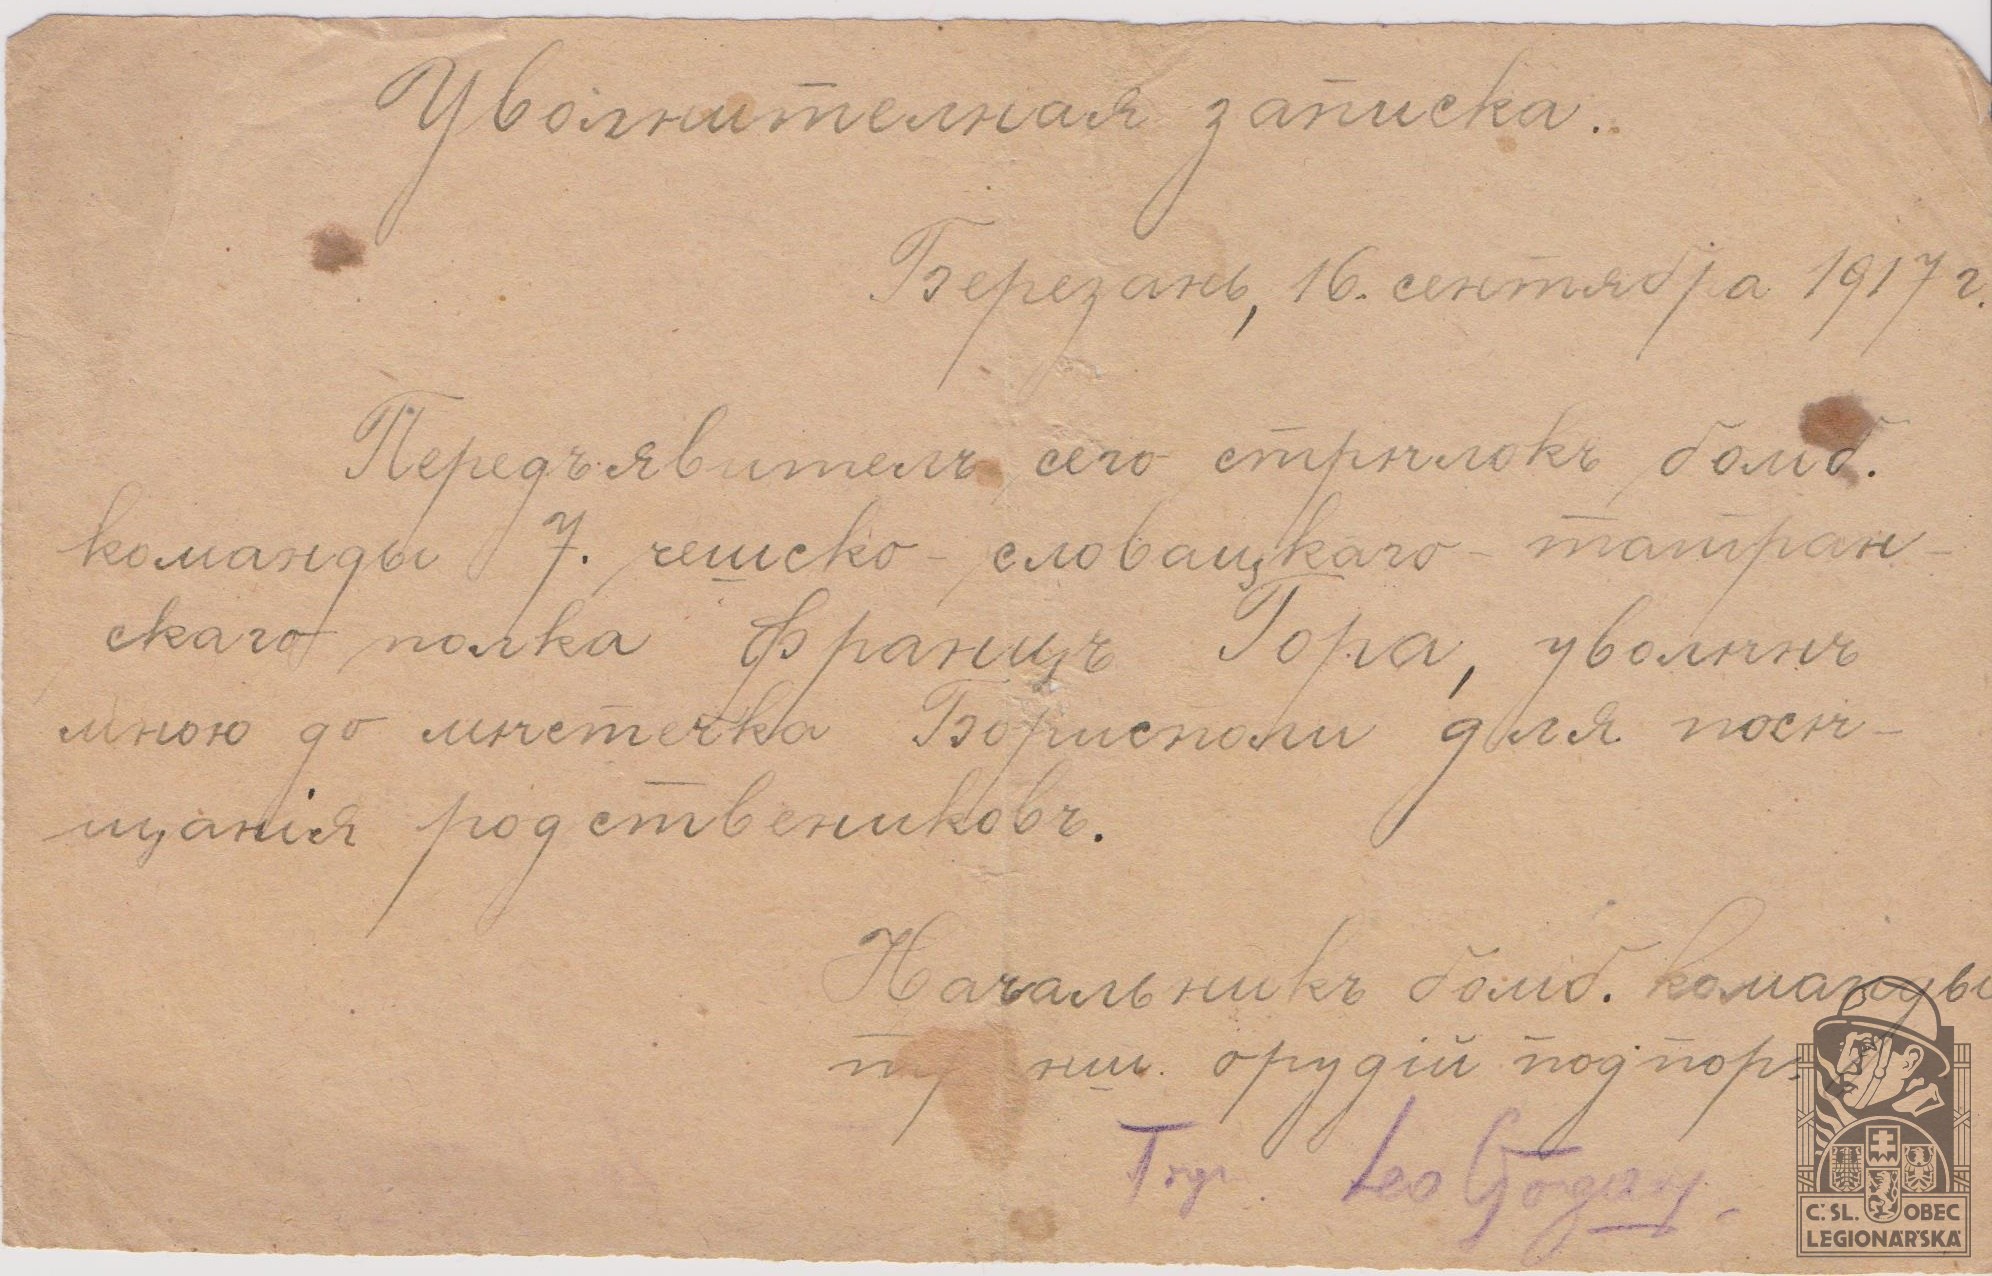 Уволнителная записка.
Березань, 16. сентября 1917 г.
Передъявителъ сего стрѣлокъ бомб.
команды 7. чешско-словацкаго-татран-
скаго полка Францъ Гора, уволѣнъ
мною до мѣстечка Борисполи для посѣ-
щанія родствениковъ.
Начальникъ бомб. команды
орудій подпор.
Leo
Č. SL. OBEC
LEGIONÁŘSKÁ